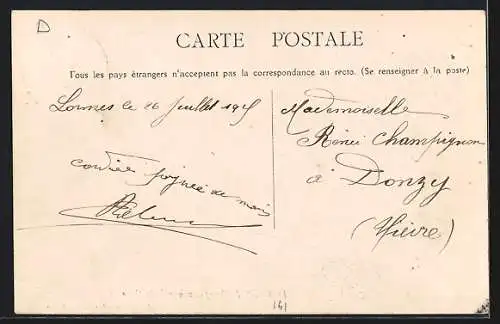 D
CARTE POSTALE
Tous les pays étrangers n'acceptent pas la correspondance au recto. (Se renseigner à la poste)
Lormes le 26 Juillet 19
cordiale poignée de main
Mademoiselle
Rénée Champignon
à Donzy
(Nièvre)